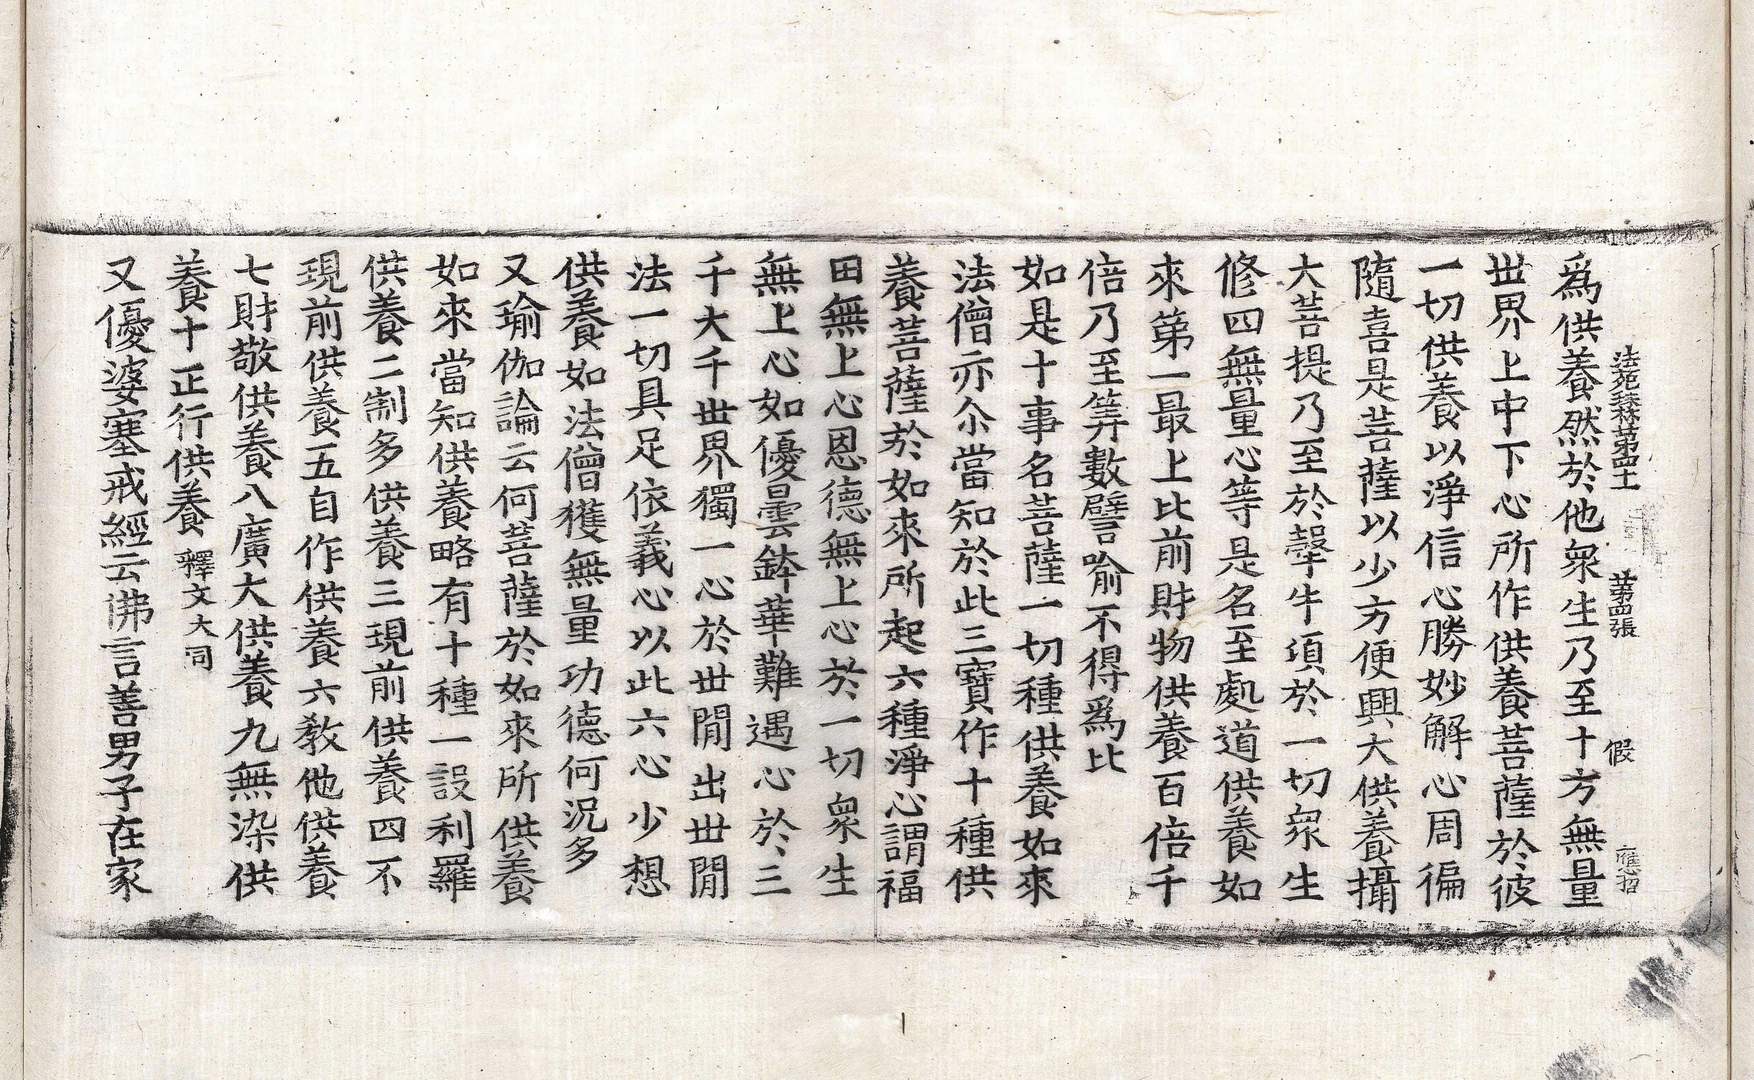 法苑珠林第四十 第四張 假 應招
爲供養然於他衆生乃至十方無量
世界上中下心所作供養菩薩於彼
一切供養以淨信心勝妙解心周徧
隨喜是菩薩以少方便興大供養攝
大菩提乃至於𤚲牛頃於一切衆生
修四無量心等是名至處道供養如
來第一最上比前財物供養百倍千
倍乃至筭數譬喻不得爲比
如是十事名菩薩一切種供養如來
法僧亦尒當知於此三寶作十種供
養菩薩於如來所起六種淨心謂福
田無上心恩德無上心於一切衆生
無上心如優曇鉢華難遇心於三
千大千世界獨一心於世閒出世閒
法一切具足依義心以此六心少想
供養如法僧獲無量功德何況多
又瑜伽論云何菩薩於如來所供養
如來當知供養略有十種一設利羅
供養二制多供養三現前供養四不
現前供養五自作供養六教他供養
七財敬供養八廣大供養九無染供
養十正行供養 釋文大同
又優婆塞戒經云佛言善男子在家